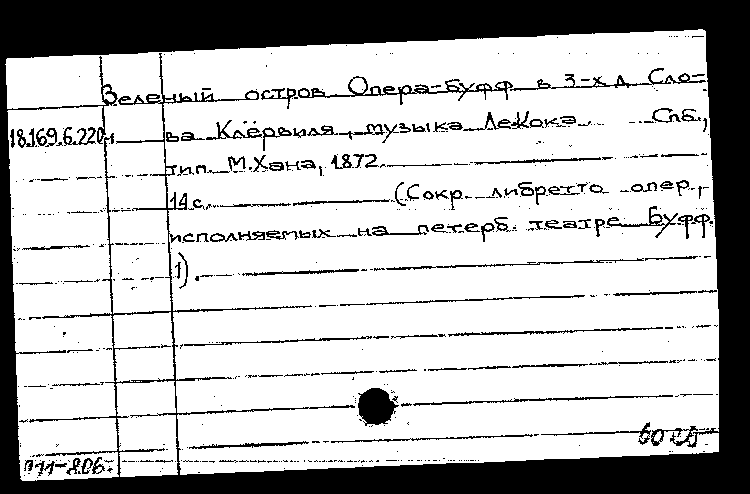 Зеленый остров Опера-буфф в 3-х д. Сло-
18.169.6.220
ва Клервиля, музыка Лекока. Спб.,
тип. М.Хана, 1872.
14 с. (Сокр. либретто опер,
исполняемых на петерб. театре Буфф.
1).